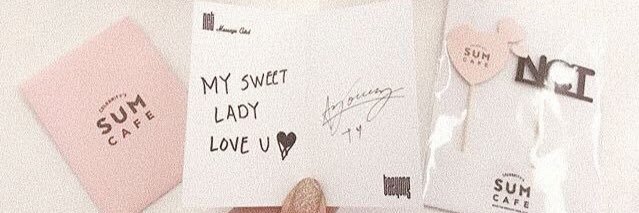 CELEBRITY'S
SUM
CAFE
nct
Message Card
MY SWEET
LADY
LOVE U
TY
taeyong
SUM
CAFE
NCT
SUM
CAFE